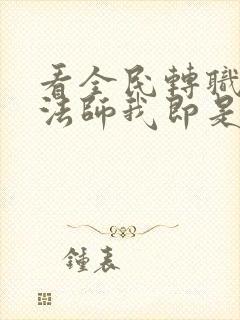 看全民轉職
法師我即是
鐘表